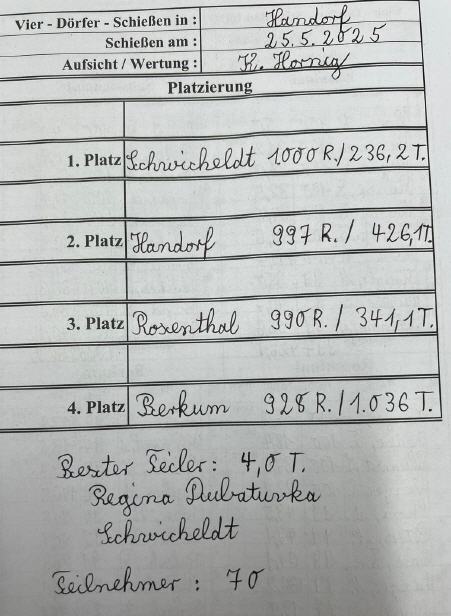 Vier - Dörfer - Schießen in : Handorf
Schießen am : 25.5.2025
Aufsicht / Wertung : K. Hornig
Platzierung
1. Platz Schwicheldt 1000 R./236,2 T.
2. Platz Handorf 997 R. / 426,1 T.
3. Platz Rosenthal 990 R. / 341,1 T.
4. Platz Berkum 928 R. / 1.036 T.
Bester Teiler: 4,0 T.
Regina
Schwicheldt
Teilnehmer : 70